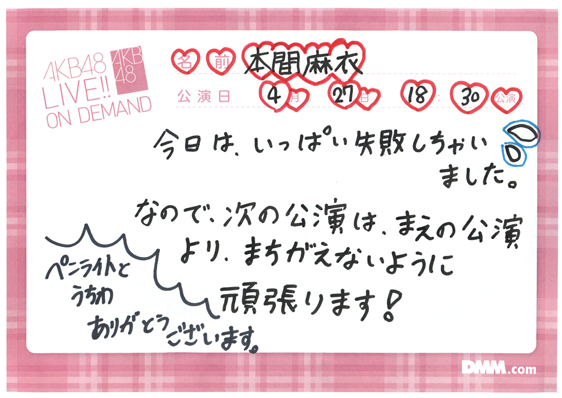 AKB48
LIVE!!
ON DEMAND
AKB
48
名前 本間麻衣
公演日 4月27日 18:30公演
今日は、いっぱい失敗しちゃい
ました。
なので、次の公演は、まえの公演
より、まちがえないように
頑張ります!
ペンライトと
うちわ
ありがとう
ございます。
DMM.com